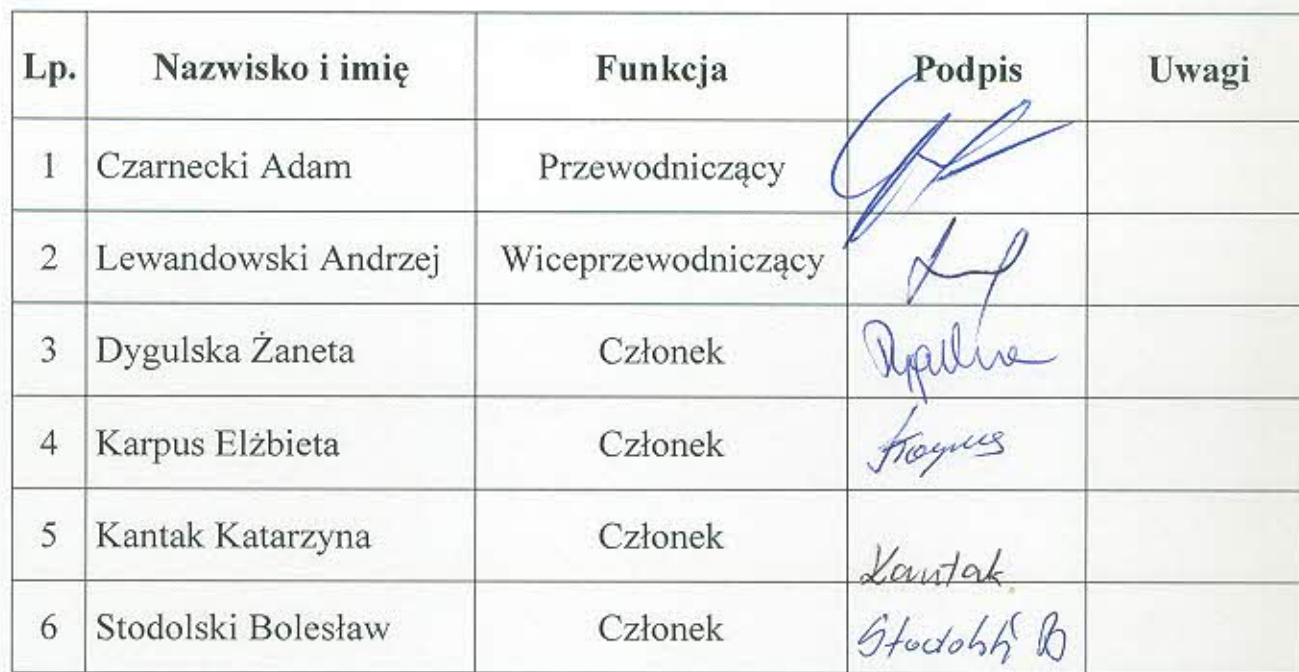 Lp. Nazwisko i imię Funkcja Podpis Uwagi
1 Czarnecki Adam Przewodniczący
2 Lewandowski Andrzej Wiceprzewodniczący
3 Dygulska Żaneta Członek
4 Karpus Elżbieta Członek Karpus
5 Kantak Katarzyna Członek Kantak
6 Stodolski Bolesław Członek Stodolski B